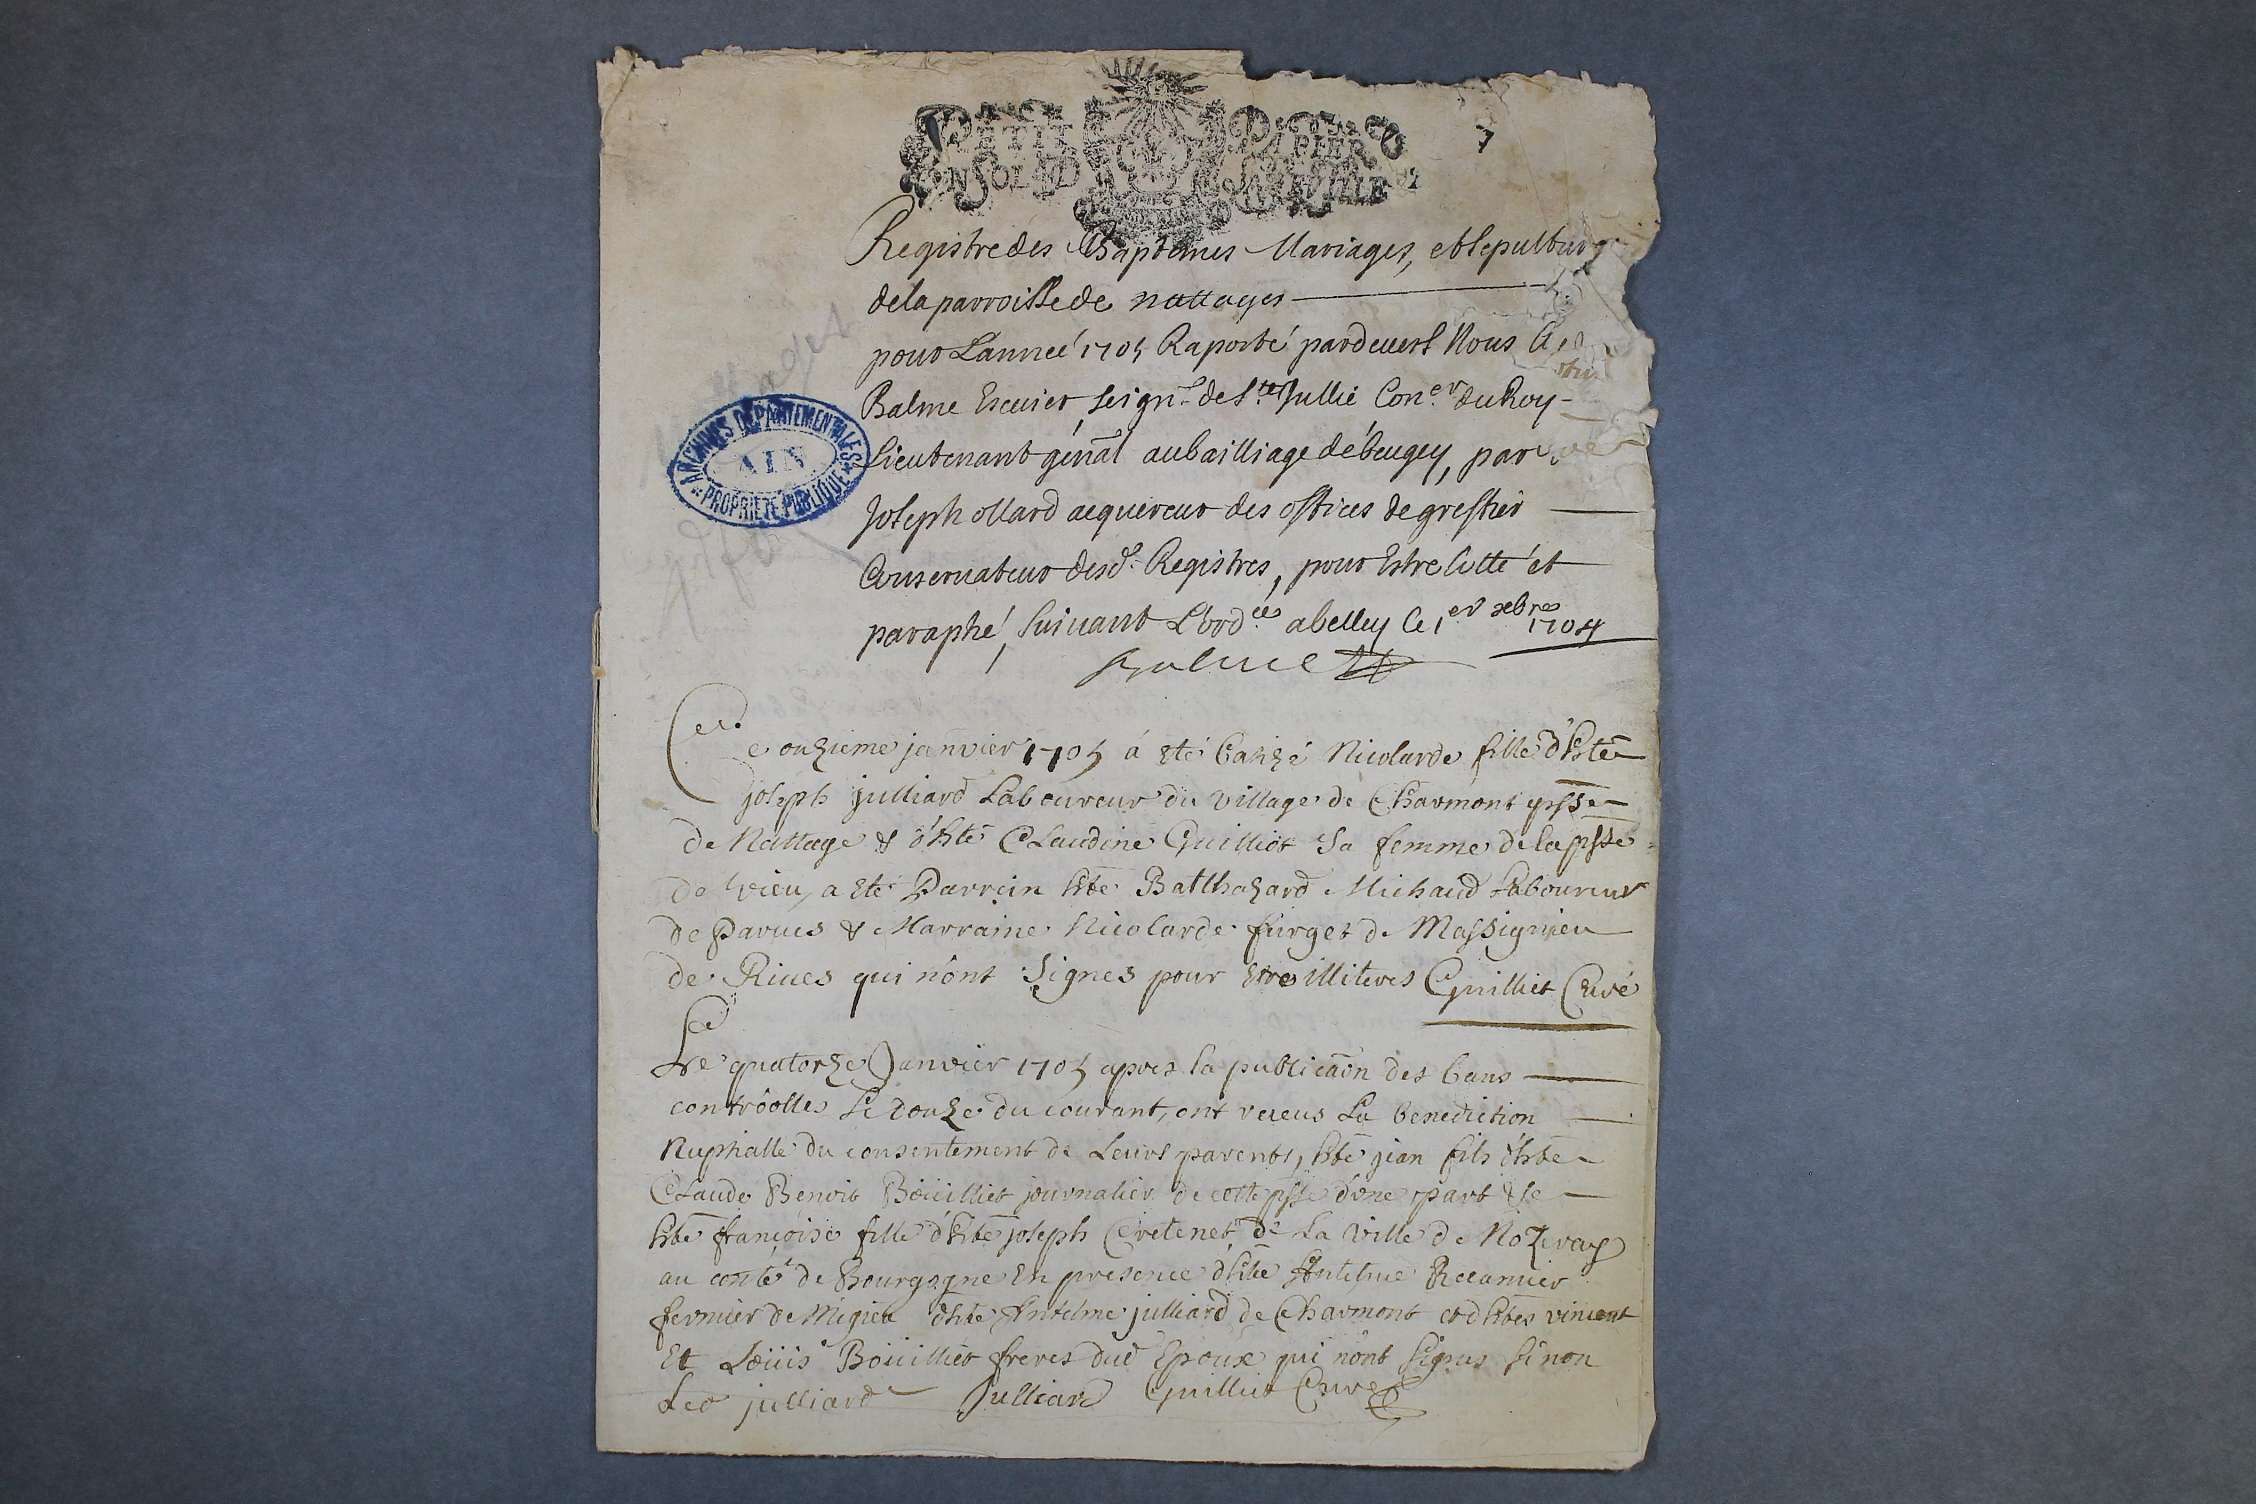 PETIT PAPIER
7
Registre des Baptemes Mariages, et Sepultur
de la parroisse de nattages
pour L'anneé 1705 Raporté pardevert Nous
Balme Escuier, seignr de Ste Jullie Coner du Roy
Lieutenant génal au bailliage dé beugey, par
Joseph ollard acquereur des offices de greffier
Conservateur desd. Registres, pour Estre Cotté et
paraphé, suivant L'ordces a belley Ce 1er xbres 1704
Balme
ARCHIVES DEPARTEMENTALES
AIN
PROPRIETE PUBLIQUE
Ce onzieme janvier 1705 á eté batizé Nicolarde fille d'hste
joseph julliard Laboureur du village de Charmont psse
de Nattage & d'hste CLaudine Guilliot sa femme de la psse
de vieu, a eté Parrein hste Balthazard Michaud Laboureur
de Parues & Marraine Nicolarde furget de Massignieu
de Riues qui n'ont signes pour etre illiteres Guilliet Curé
Le quatorze Janvier 1705 apres la publicaon des bans
contrôolles Le douze du courant, ont receus La benediction
Nuptialle du consentement de Leurs parents, hste jean fils d'hste
CLaude Benoit Boüilliet journalier de cette psse d'une part & de
hste françoise fille d'hste joseph Cretenet de La ville de Nozeray
au conté de Bourgogne En presence d'hste Antelme Recamier
fermier de Migieu d'hste Antelme julliard de Charmont et d'hstes vincent
Et Loüis Boüilliet freres dud Epoux qui n'ont signes sinon
Led julliard Julliard Guilliet Curé